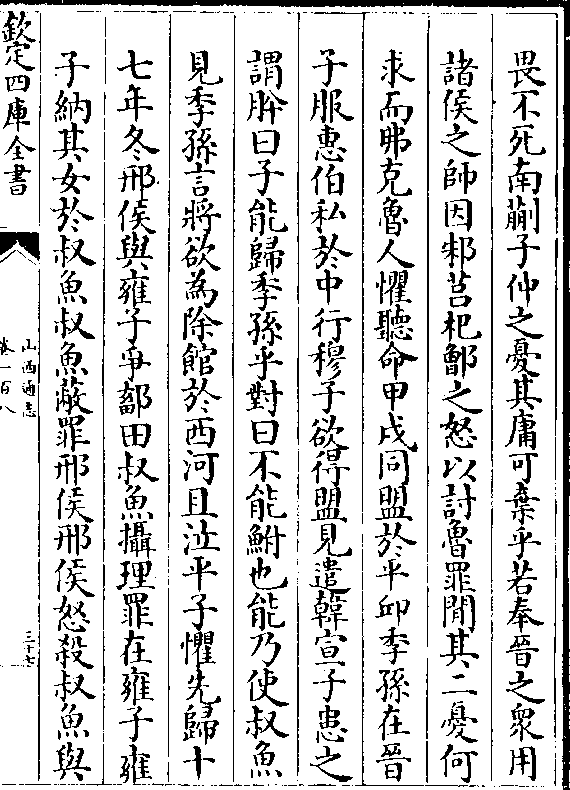 畏不死南蒯子仲之憂其庸可棄乎若奉晉之衆用
諸侯之師因邾莒杞鄫之怒以討魯罪間其二憂何
求而弗克魯人懼聽命甲戌同盟於平邱季孫在晉
子服惠伯私於中行穆子欲得盟見遣韓宣子患之
謂肸曰子能歸季孫乎對曰不能鮒也能乃使叔魚
見季孫言將欲為除館於西河且泣平子懼先歸十
七年冬邢侯與雍子爭鄐田叔魚攝理罪在雍子雍
子納其女於叔魚叔魚蔽罪邢侯邢侯怒殺叔魚與
欽定四庫全書
山西通志
卷一百八
三十七